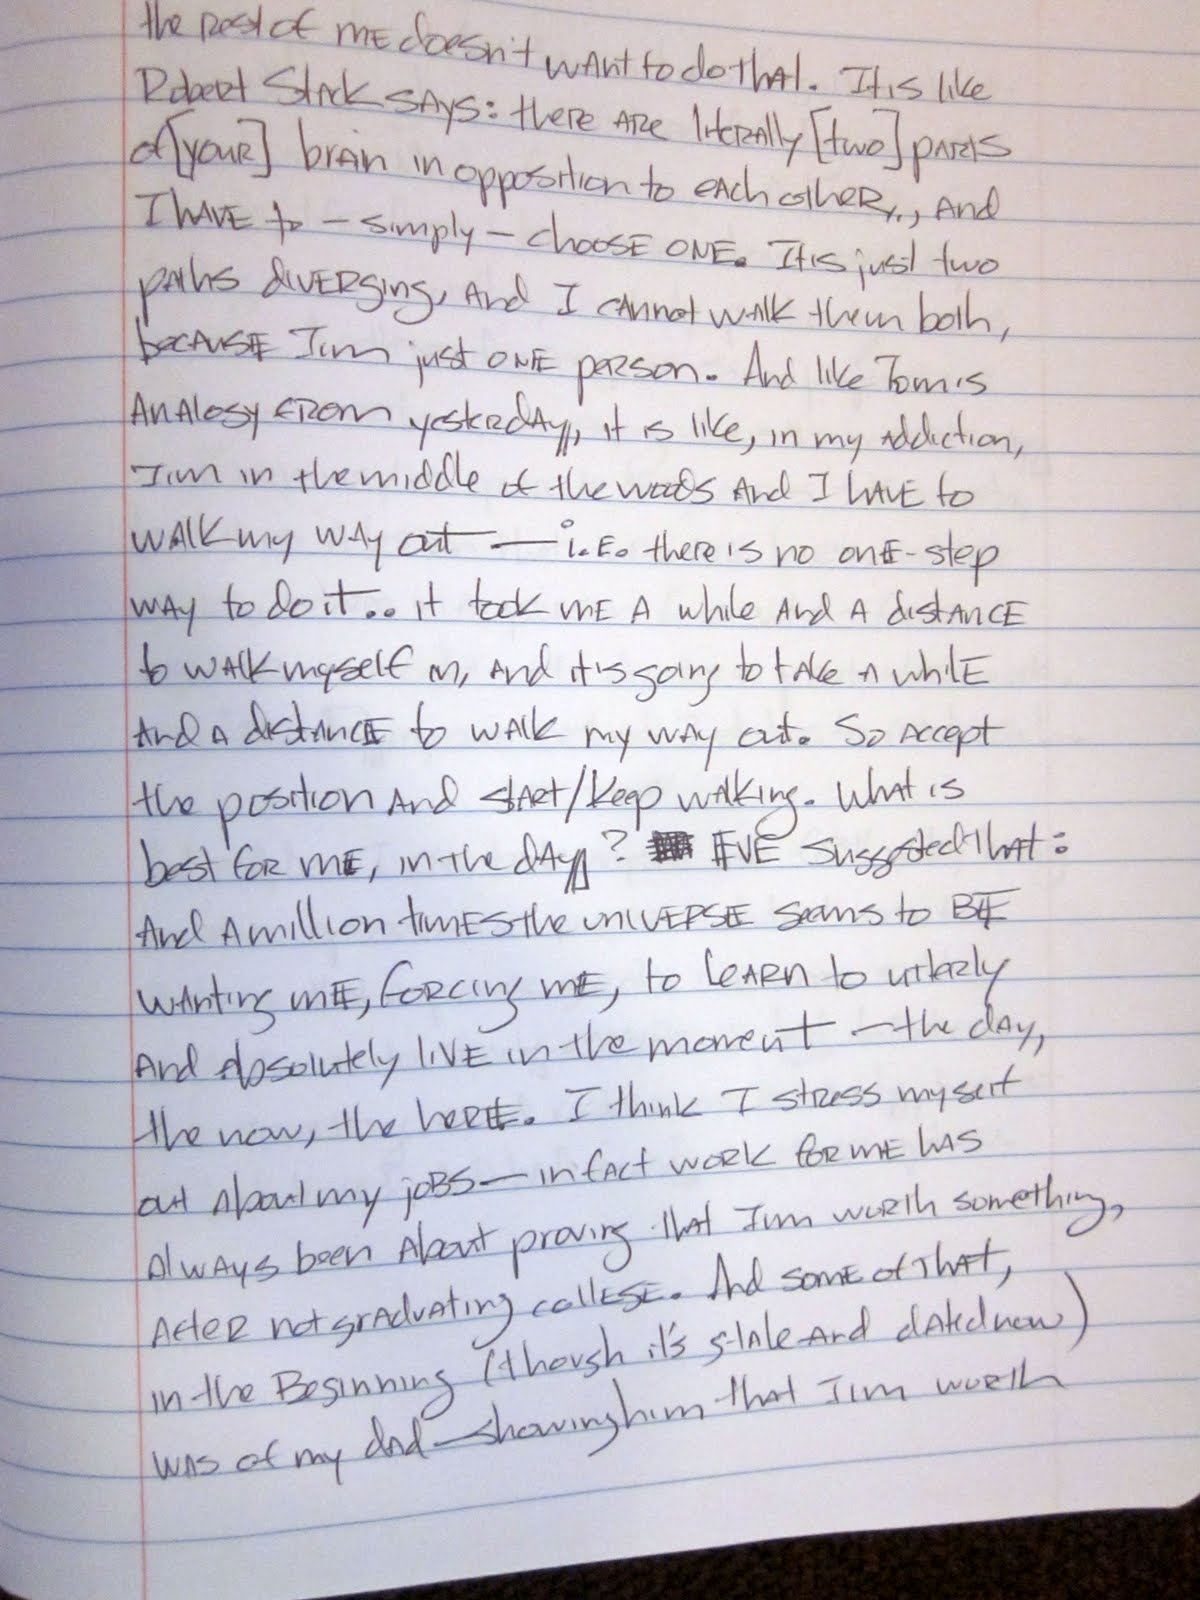 the rest of me doesn't want to do that. It is like
Robert Stack says: there are literally [two] parts
of [your] brain in opposition to each other,.., and
I have to – simply – choose one. It is just two
paths diverging, and I cannot walk them both,
because I'm just one person. And like Tom's
analogy from yesterday, it is like, in my addiction,
I'm in the middle of the woods and I have to
walk my way out — i.e. there is no one-step
way to do it.. it took me a while and a distance
to walk myself in, and it is going to take a while
and a distance to walk my way out. So accept
the position and start/keep walking. What is
best for me, in the day? EVE suggested that:
And a million times the universe seems to be
wanting me, forcing me, to learn to utterly
and absolutely live in the moment – the day,
the now, the here. I think I stress myself
out about my jobs – in fact work for me has
always been about proving that I'm worth something,
after not graduating college. And some of that,
in the beginning (though it's stale and dated now)
was of my dad – showing him that I'm worth